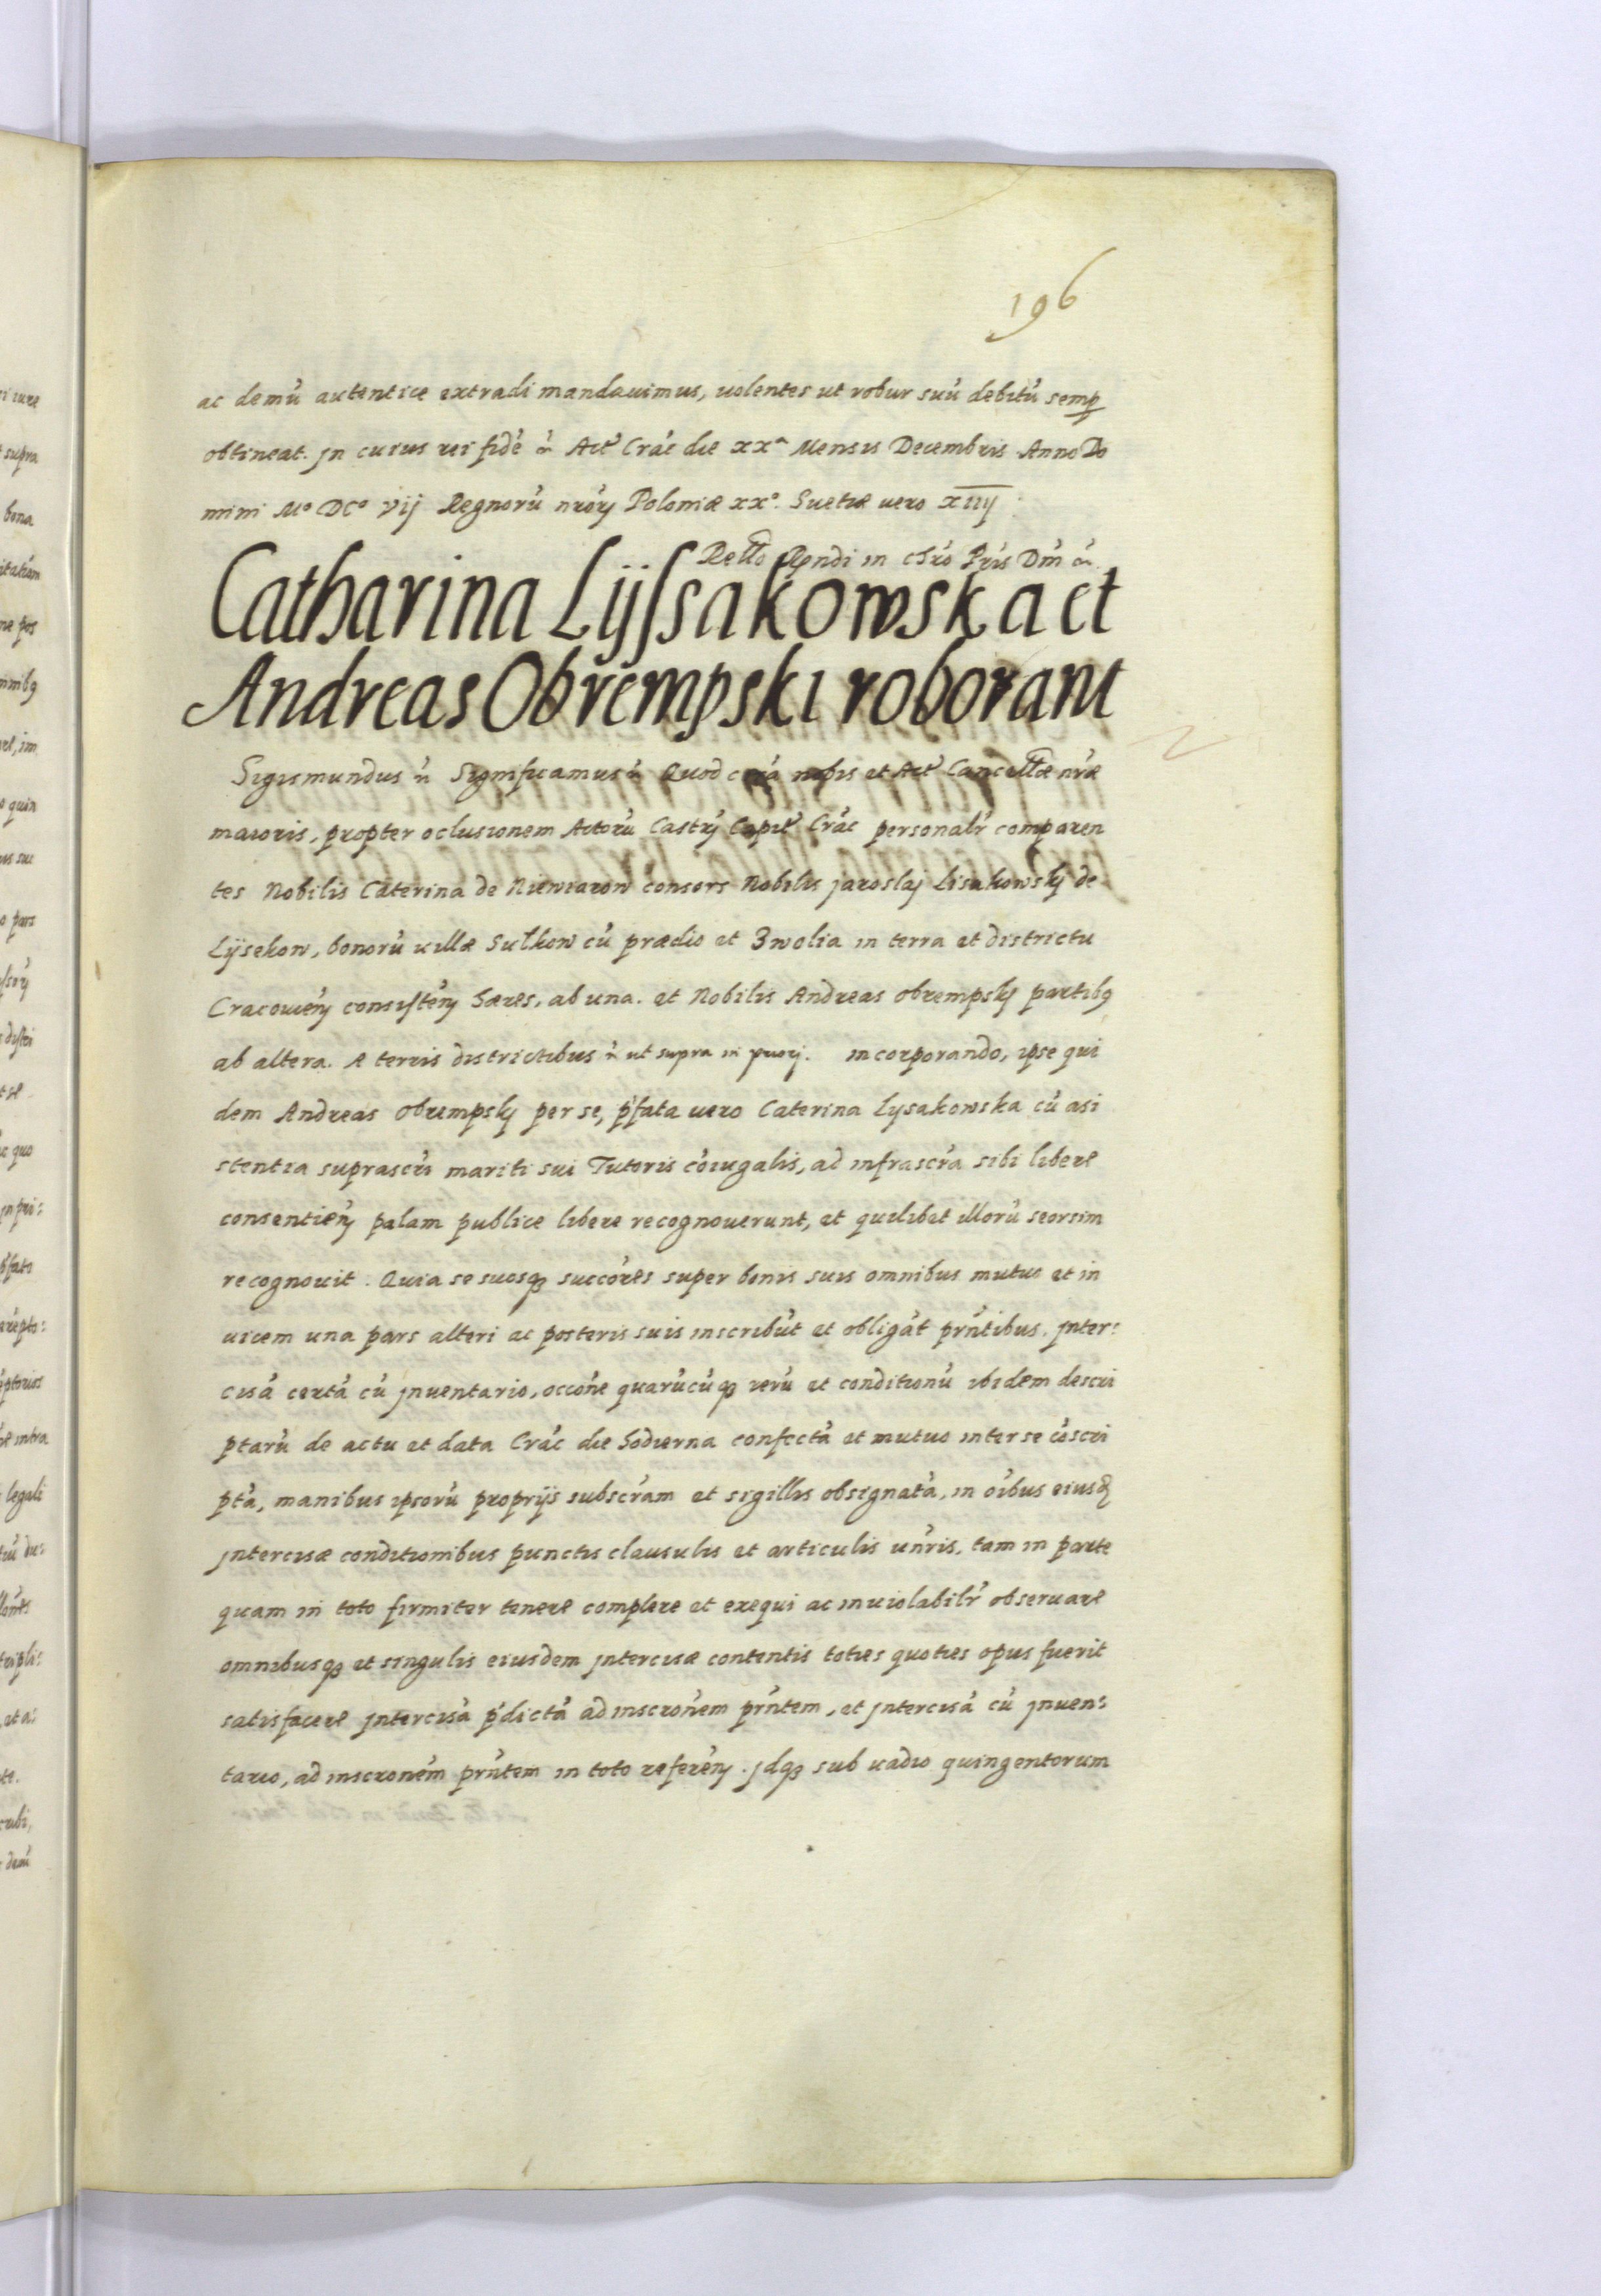 196
ac demū autentice extradi mandauimus, uolentes ut robur suū debitū semp
obtineat. Jn cuius rei fidē &c Act Crac die xxa Mensis Decembris Anno Do
mini Mo DCo vij Regnorū nrorȝ Poloniæ xxo. Suetiæ uero xiiij.
Rello Rendi in chro Pris Dni &c.
Catharina Lijssakowska et
Andreas Obrempski roborant
Sigismundus &c Significamus &c Quod corā nobis et Act Cancellæ nræ
maioris, propter oclusionem Actorū Castrȝ Capit Crac personalr comparen
tes Nobilis Caterina de Niewiarow consors Nobilis jaroslaj Lisakowskȷ de
Lijsekow, bonorū uillæ Sulkow cū prædio et Zwolia in terra et districtu
Cracouieñ consisteñ hæres, ab una. et Nobilis Andreas obrempskȷ partibq
ab altera. A terris districtibus &c ut supra in priorj. incorporando, ipse qui
dem Andreas obrempskȷ per se, pfata uero Caterina Lysakowska cū asi
stentia suprascri mariti sui Tutoris cōiugalis, ad infrascra sibi libere
consentieñ palam publice libere recognouerunt, et quilibet illorū seorsim
recognouit. Quia se suosqȝ succores super bonis suis omnibus mutuo et in
uicem una pars alteri ac posteris suis inscribūt et obligāt prntibus. Jnter:
cisā certā cū jnuentario, occone quarūcūqȝ rerū et conditionū ibidem descri
ptarū de actu et data Crac die hodierna confectā et mutuo inter se cōscri
ptā, manibus ipsorū proprijs subscram et sigillis obsignatā, in oibus eiusd
jntercisæ conditionibus punctis clausulis et articulis unris, tam in parte
quam in toto firmiter tenere complere et exequi ac inuiolabilr obseruare
omnibusqȝ et singulis eiusdem jntercisæ contentis toties quoties opus fuerit
satisfacere jntercisā pdictā ad inscronem prntem, et jntercisā cū jnuen:
tario, ad inscronem prntem in toto refereñ. Jdqȝ sub uadio quingentorum